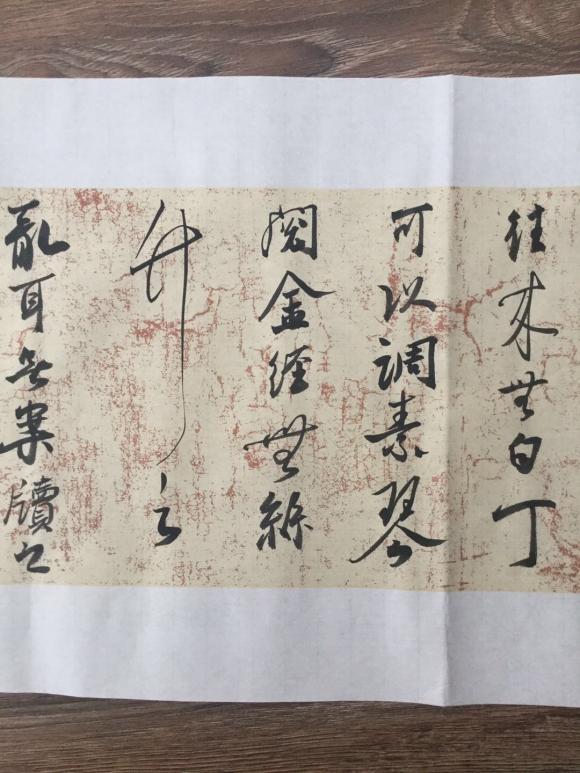 往来無白丁
可以調素琴
閲金經無絲
竹之
亂耳無案牘之